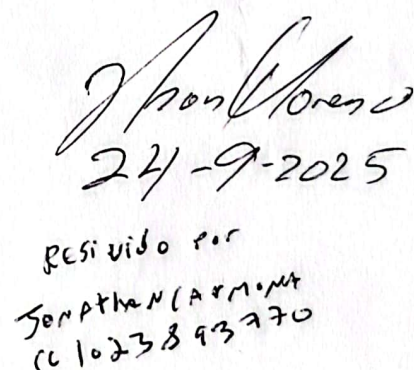 Jhon Moreno
24-9-2025
RESiviDo Por
JONAthaN CArMONA
CC 1023893770